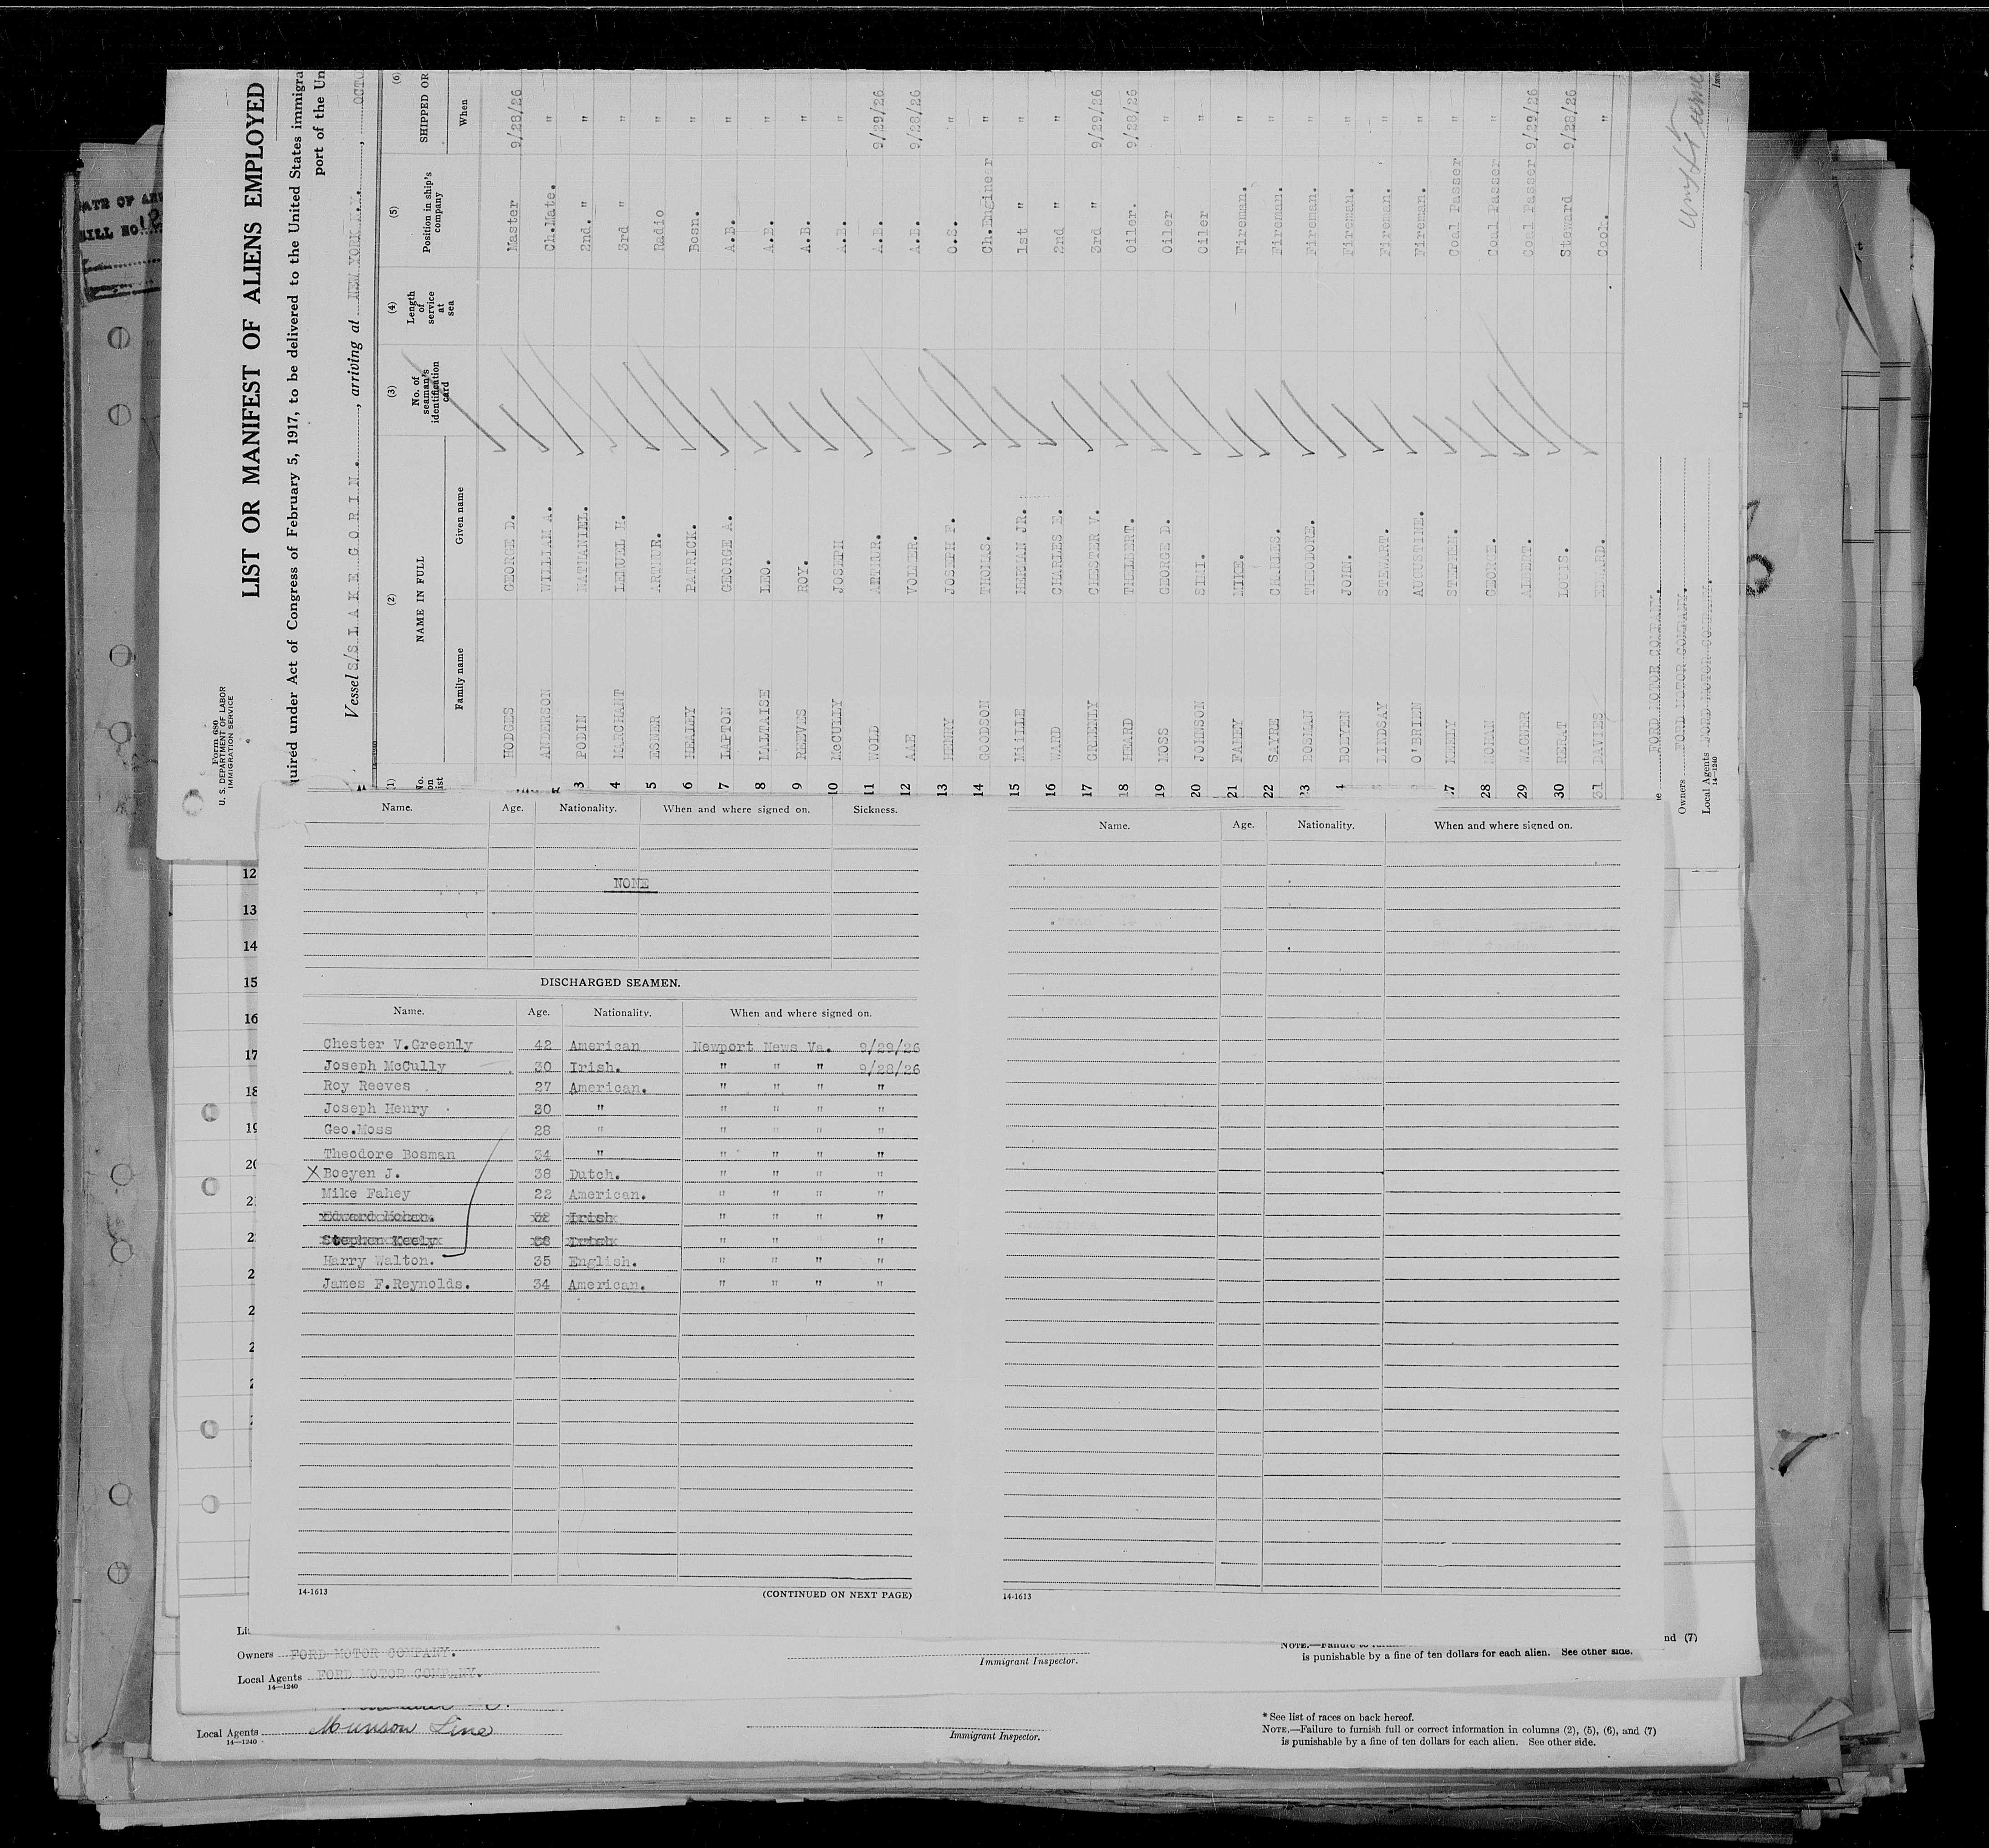 Form 680
U. S. DEPARTMENT OF LABOR
IMMIGRATION SERVICE
LIST OR MANIFEST OF ALIENS EMPLOYED
quired under Act of Congress of February 5, 1917, to be delivered to the United States immigra
port of the Un
Vessel S/S L A K E G O R I N., arriving at NEW YORK N.Y., OCTO
(1) (2) (3) (4) (5) (6)
No. on list NAME IN FULL No. of seaman's identification card Length of service at sea Position in ship's company SHIPPED OR
Family name Given name When
HODGES GEORGE D. Master 9/28/26
ANDERSON WILLIAM A. Ch.Mate. "
3 PODIN NATHANIEL. 2nd. " "
4 MARCHANT LEMUEL H. 3rd " "
5 ESNER ARTHUR. Radio "
6 HEALEY PATRICK. Bosn. "
7 LAPTON GEORGE A. A.B. "
8 MALTAISE LEO. A.B. "
9 REEVES ROY. A.B. "
10 McCULLY JOSEPH A.B. "
11 WOLD ARTHUR. A.B. 9/29/26
12 AAE VOLMER. A.B. 9/28/26
13 HENRY JOSEPH F. O.S. "
14 GOODSON THOMAS. Ch.Engineer "
15 HERMAN JR. 1st " "
16 WARD CHARLES E. 2nd " "
17 GREENLY CHESTER V. 3rd " 9/29/26
18 HEARD Oiler. 9/28/26
19 MOSS GEORGE D. Oiler "
20 JOHNSON Oiler "
21 FAHEY MIKE. Fireman. "
22 SAYRE CHARLES. Fireman. "
23 BOSMAN THEODORE. Fireman. "
4 BOEYEN JOHN. Fireman. "
LINDSAY STEWART. Fireman. "
O'BRIEN AUGUSTINE. Fireman. "
27 KEELY STEPHEN. Coal Passer "
28 MOHAN GEORGE. Coal Passer "
29 WAGNER ALBERT. Coal Passer 9/29/26
30 LOUIS. Steward 9/28/26
31 DAVIES EDWARD. Cook. "
FORD MOTOR COMPANY.
Owners FORD MOTOR COMPANY.
Local Agents FORD MOTOR COMPANY.
14—1240
Name. Age. Nationality. When and where signed on. Sickness.
NONE
DISCHARGED SEAMEN.
Name. Age. Nationality. When and where signed on.
Chester V.Greenly 42 American Newport News Va. 9/29/26
Joseph McCully 30 Irish. " " " 9/28/26
Roy Reeves 27 American. " " " "
Joseph Henry 30 " " " " "
Geo.Moss 28 " " " " "
Theodore Bosman 34 " " " " "
X Boeyen J. 38 Dutch. " " " "
Mike Fahey 22 American. " " " "
Edward Mohan. 32 Irish " " " "
Stephen Keely Irish " " "
Harry Walton. 35 English. " " " "
James F.Reynolds. 34 American. " " " "
14-1613 (CONTINUED ON NEXT PAGE)
Name. Age. Nationality. When and where signed on.
14-1613
12
13
14
15
16
17
18
Owners FORD MOTOR COMPANY.
Local Agents FORD MOTOR COMPANY.
14—1240
Immigrant Inspector.
nd (7)
is punishable by a fine of ten dollars for each alien. See other side.
Local Agents Munson Line
14—1240
Immigrant Inspector.
* See list of races on back hereof.
NOTE.—Failure to furnish full or correct information in columns (2), (5), (6), and (7)
is punishable by a fine of ten dollars for each alien. See other side.